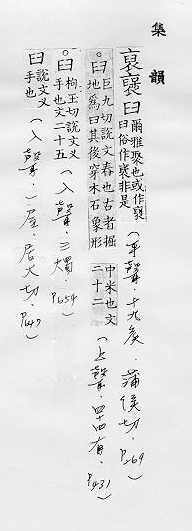 集韻
裒褒𦥑 爾雅聚也或作褒
𦥑俗作褎非是 (平聲．十九矦．蒲侯切．P.269)
臼 巨九切說文舂也古者掘
地爲臼其後穿木石象形
中米也文
二十二 (上聲．四十四有．P.431)
𦥑 枸玉切說文叉
手也文二十五 (入聲．三燭．P.654)
𦥑 說文叉
手也 (入聲．一屋．居六切．P.647)